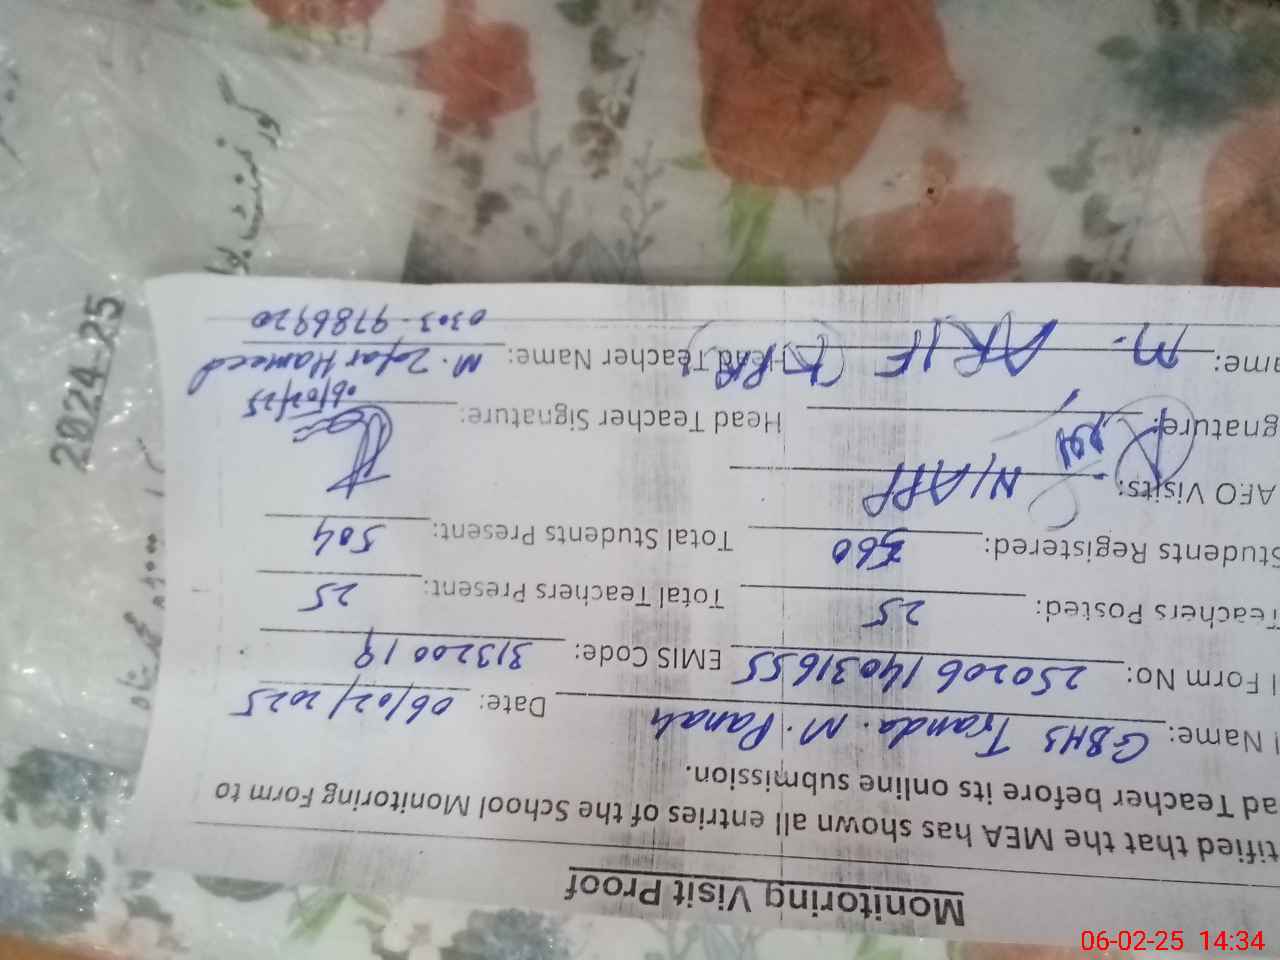 Monitoring Visit Proof
tified that the MEA has shown all entries of the School Monitoring Form to
ad Teacher before its online submission.
l Name: GBHS Tranda. M. Panah Date: 06/02/2025
l Form No: 25020614031655 EMIS Code: 31320019
Teachers Posted: 25 Total Teachers Present: 25
Students Registered: 560 Total Students Present: 504
AEO Visits: N/APP
gnature: Head Teacher Signature: 06/02/25
ame: M. ARIF Head Teacher Name: M. Zafar Hameed
0303-9786920
2024-25
گورنمنٹ
06-02-25 14:34